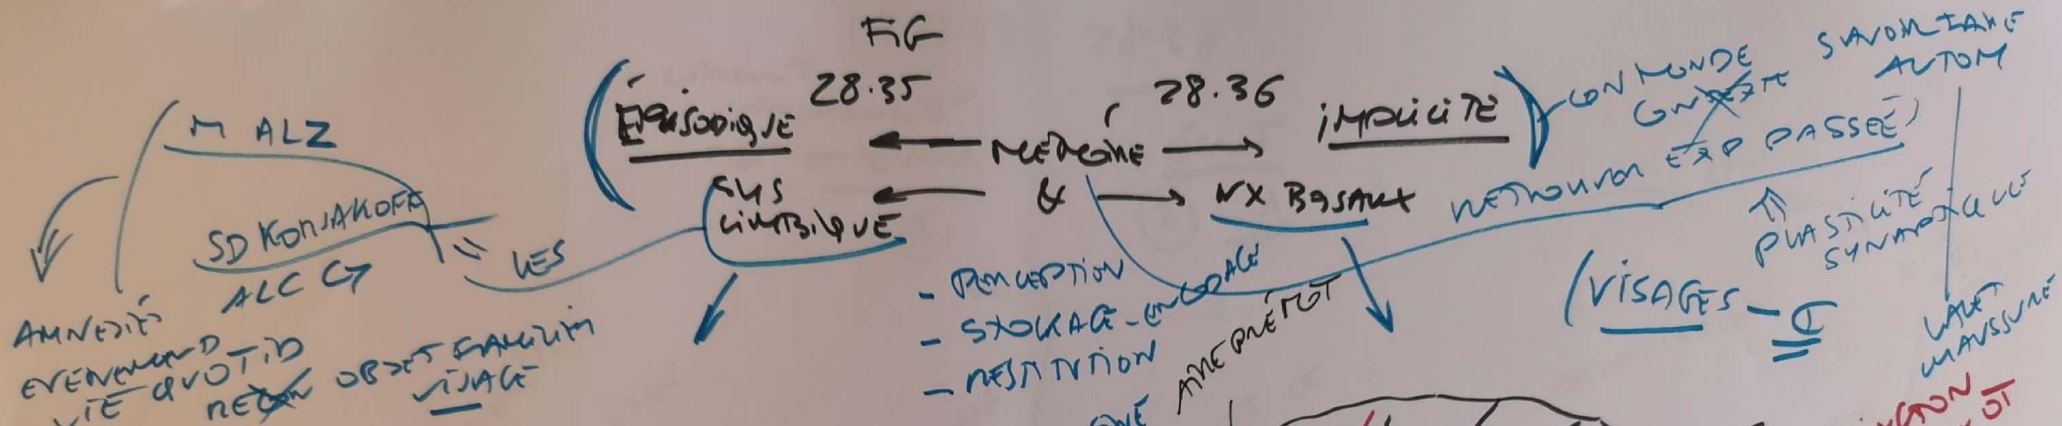 FIG
28.35 28.36
ÉPISODIQUE ← MÉMOIRE → IMPLICITE
SYS LIMBIQUE ← & → NX BASAUX
M ALZ
SD KORSAKOFF
ALC
LES
AMNÉSIES
VIE QUOTID
OBJET FAMILIER
VISAGE
- PERCEPTION
- STOCKAGE - ENCODAGE
- RESTITUTION
CON MONDE
SAVOIR FAIRE
AUTOM
RETROUVER EXP PASSÉE
PLASTICITÉ
SYNAPTIQUE
(VISAGES -
LACET
CHAUSSURE